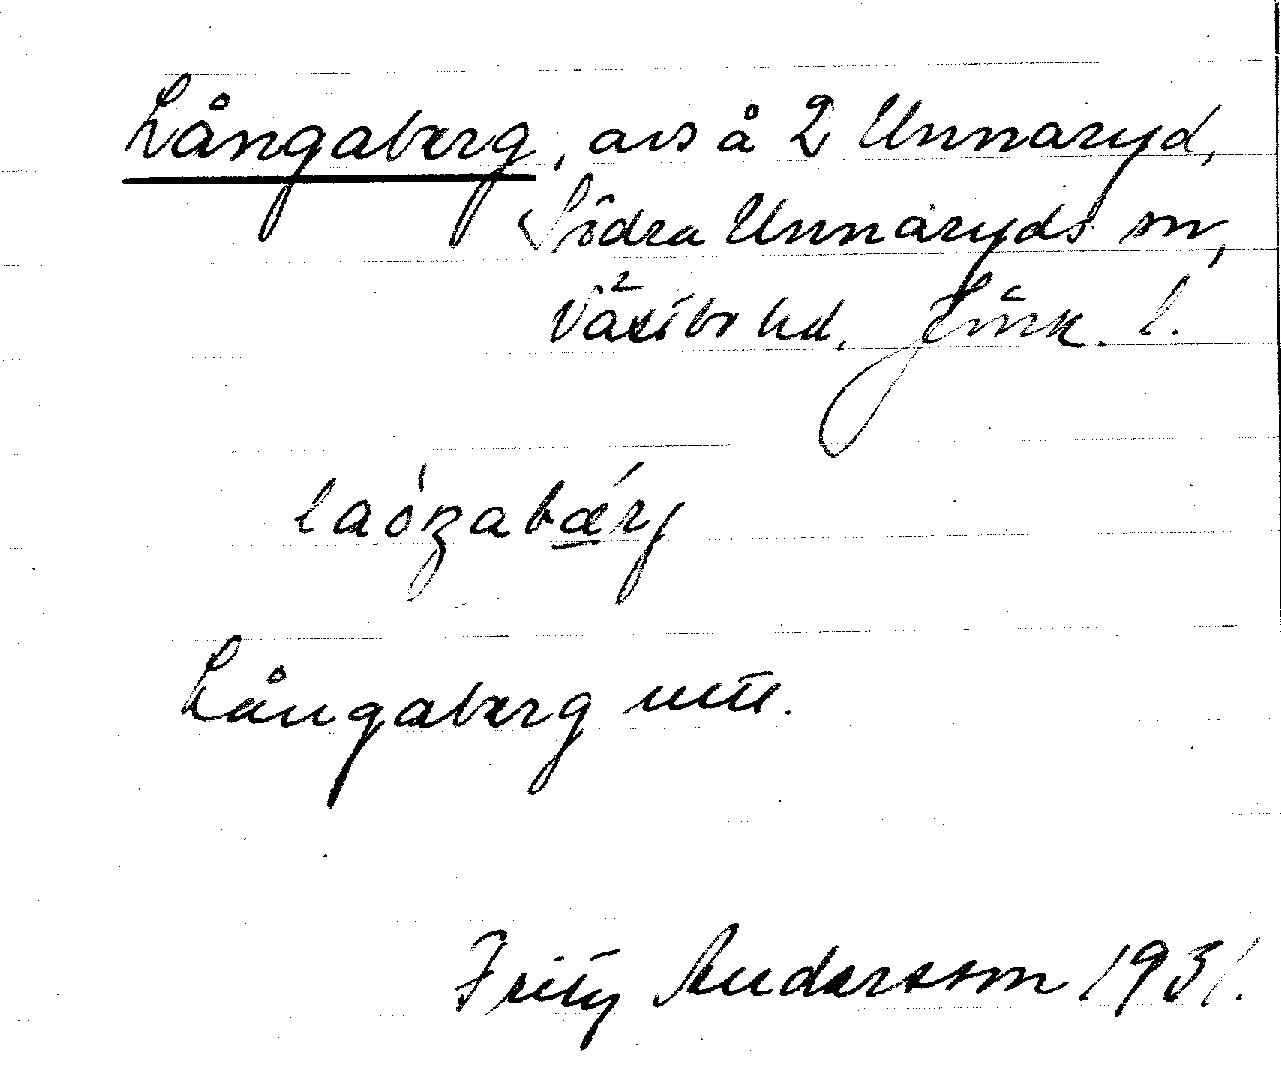 Långaberg, avs å 2 Unnaryd,
Södra Unnaryds sn,
Västbo hd. Jönk. l.
laóŋabǽrj
Långaberg mtl.
Frity Andersson 1931.